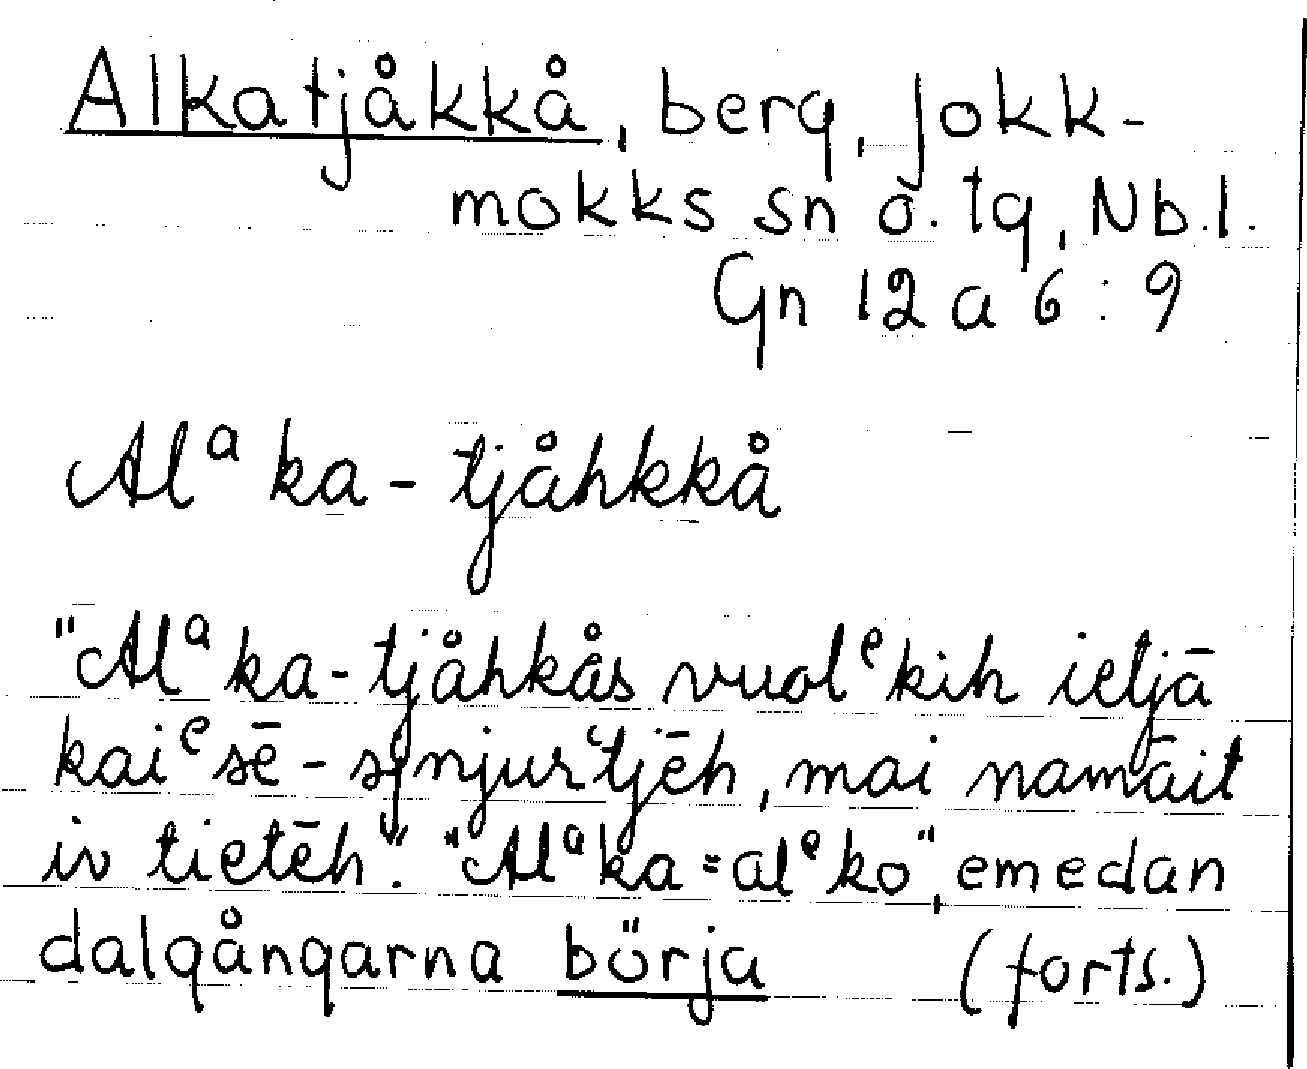 Alkatjåkkå, berg, Jokk-
mokks sn o. tg, Nb.l.
Gn 12 a 6 : 9
Alᵃka-tjåhkkå
"Alᵃka-tjåhkås vuolᵉkih ieljā
kaiᵉsē-synjurʻtjēh, mai namāit
iv tietēh." "Alᵃka = alᵉko", emedan
dalgångarna börja (forts.)